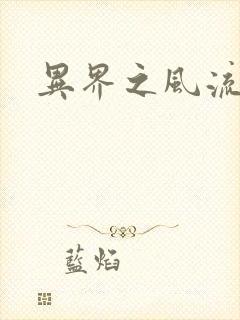 異界之風流
藍焰